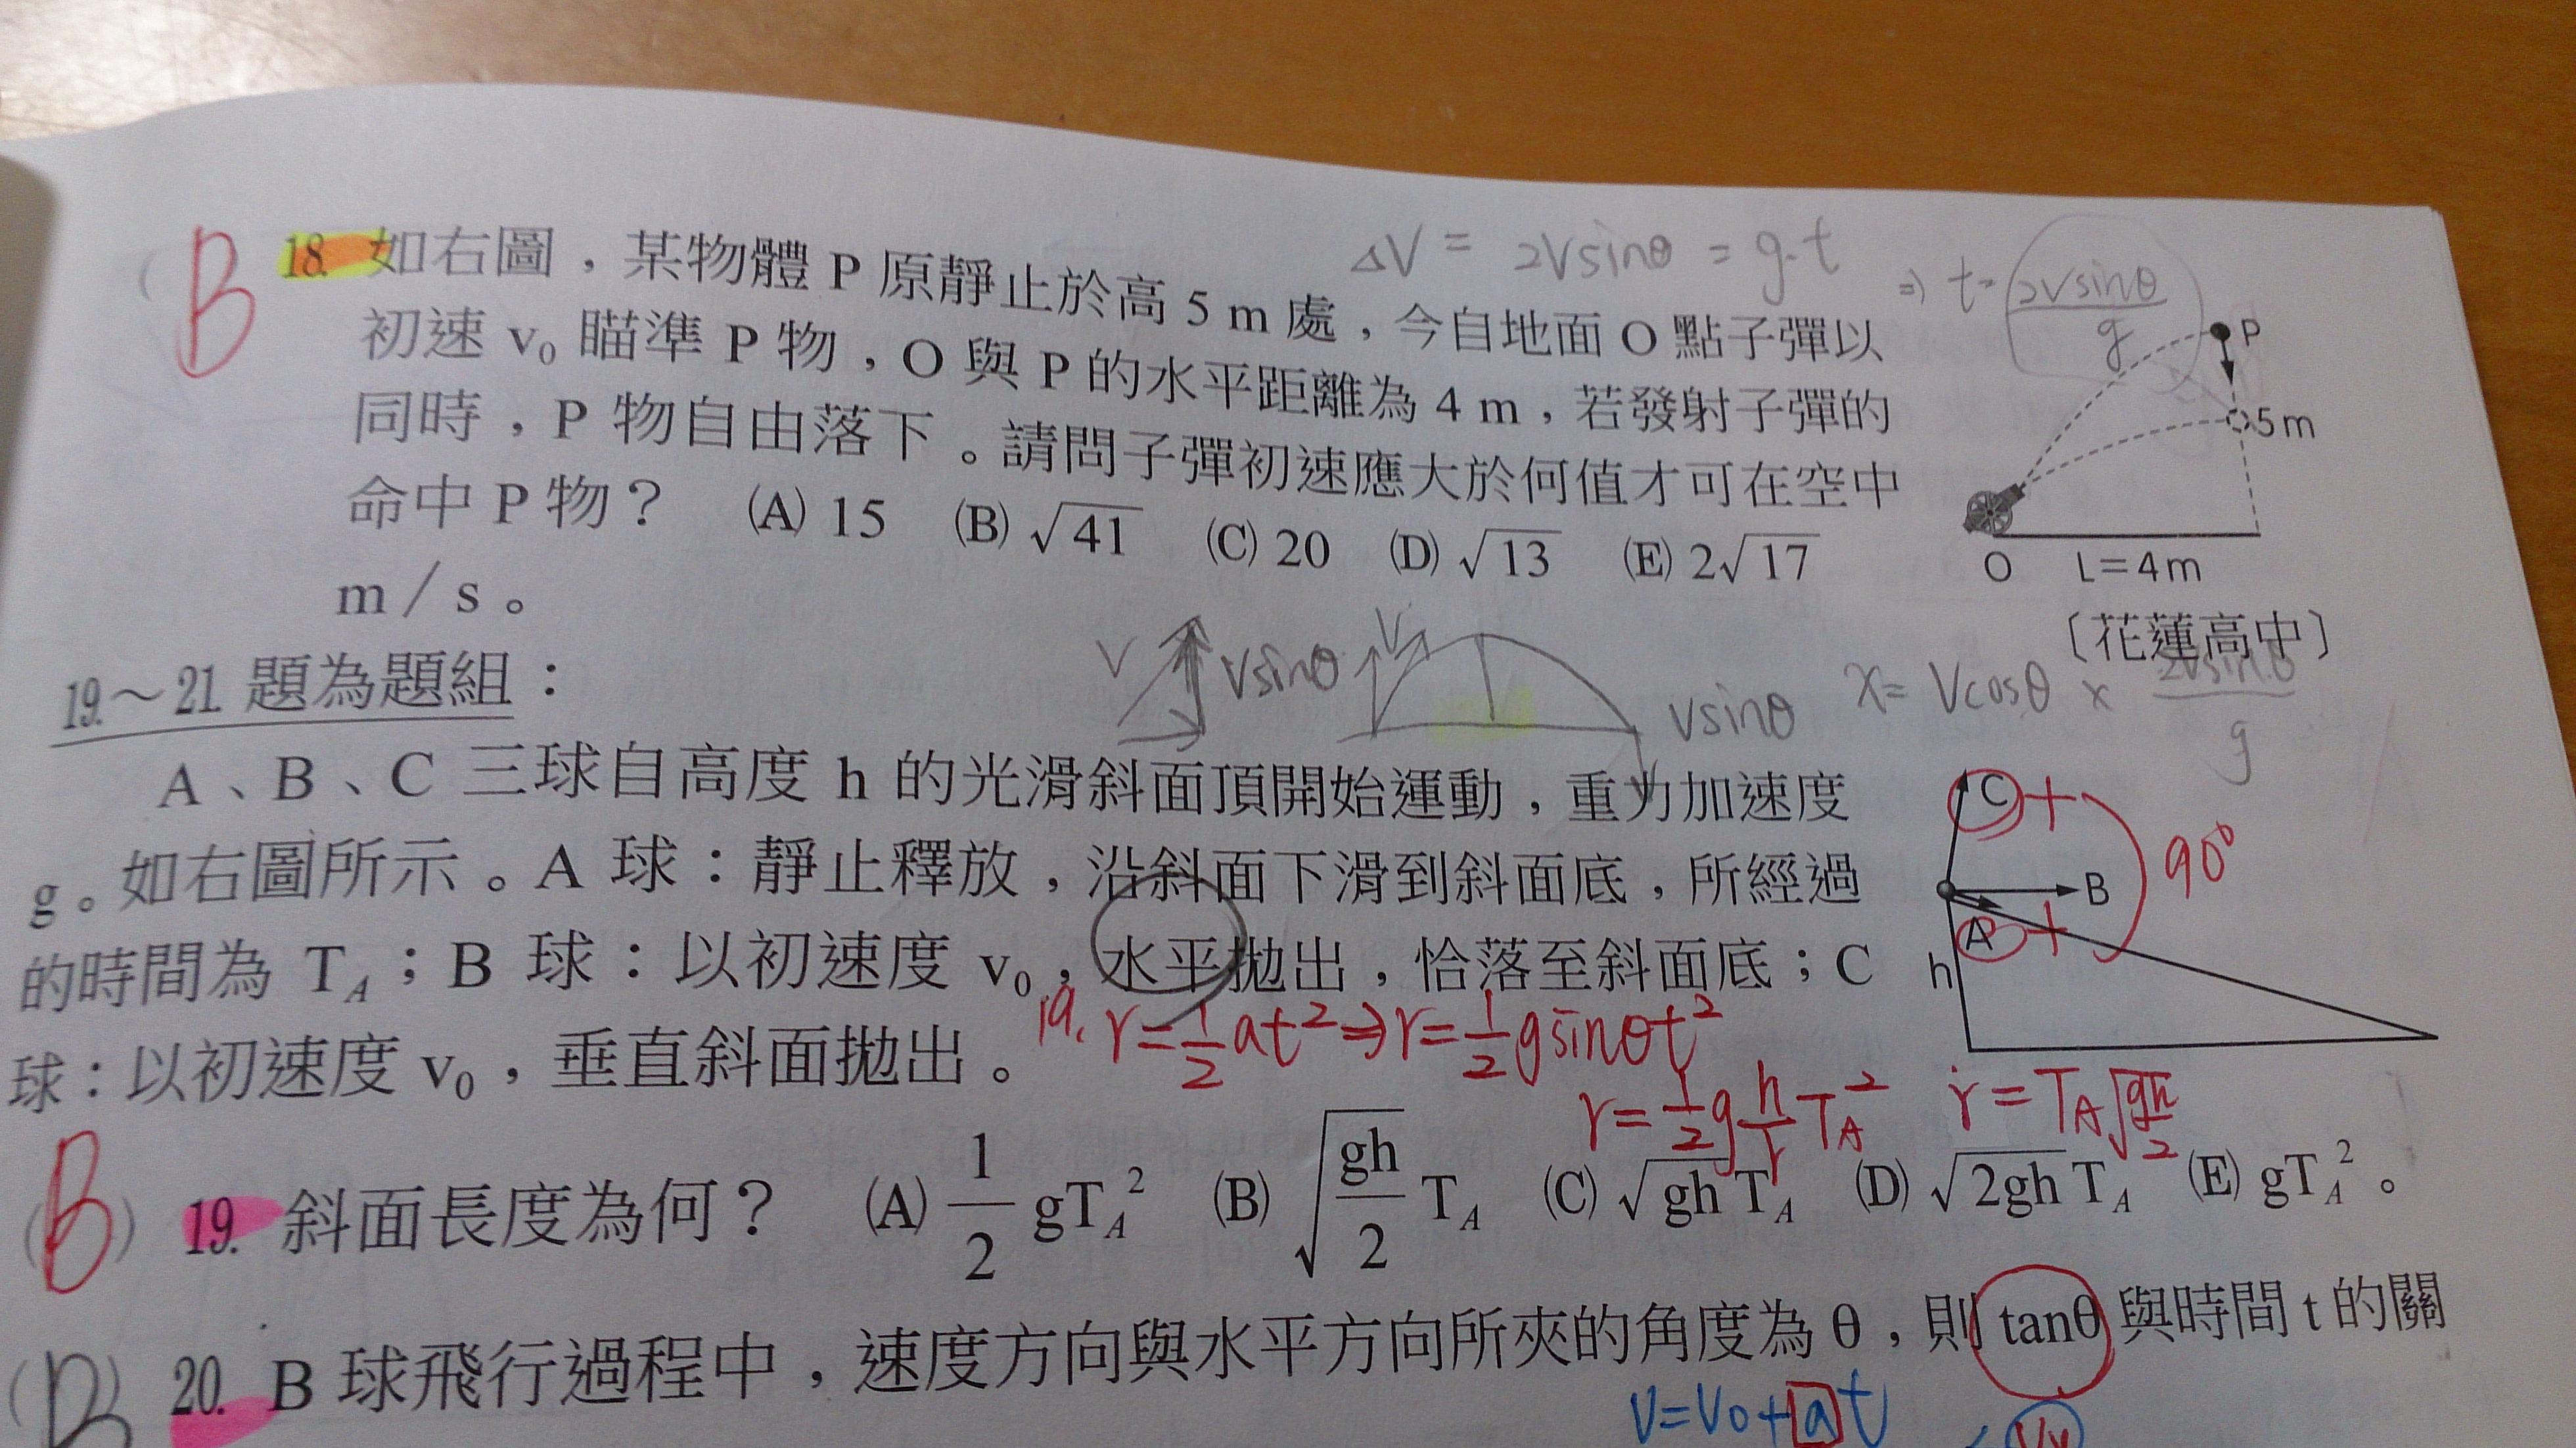 B
18. 如右圖，某物體 P 原靜止於高 5 m 處，今自地面 O 點子彈以
初速 v₀ 瞄準 P 物，O 與 P 的水平距離為 4 m，若發射子彈的
同時，P 物自由落下。請問子彈初速應大於何值才可在空中
命中 P 物？ (A) 15 (B) √41 (C) 20 (D) √13 (E) 2√17
m／s。
ΔV = 2Vsinθ = g·t
⇒ t = 2Vsinθ/g
P
5m
O L＝4m
〔花蓮高中〕
V Vsinθ V Vsinθ
x = Vcosθ × 2Vsinθ/g
19.～21. 題為題組：
A、B、C 三球自高度 h 的光滑斜面頂開始運動，重力加速度
g。如右圖所示。A 球：靜止釋放，沿斜面下滑到斜面底，所經過
的時間為 T_A；B 球：以初速度 v₀，水平拋出，恰落至斜面底；C
球：以初速度 v₀，垂直斜面拋出。
C
B
A
h
90°
19. r=½at²⇒r=½gsinθt²
r=½g h/r T_A²
r=T_A√(gh/2)
(B) 19. 斜面長度為何？ (A) 1/2 gT_A² (B) √(gh/2) T_A (C) √gh T_A (D) √2gh T_A (E) gT_A²。
20. B 球飛行過程中，速度方向與水平方向所夾的角度為 θ，則 tanθ 與時間 t 的關
V=V₀+at